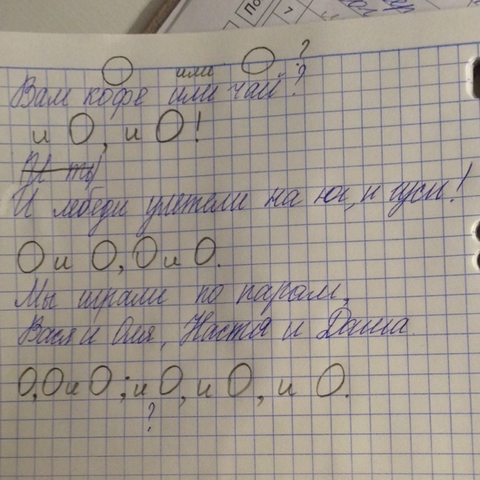 О или О ?
Вам кофе или чай ?
и О, и О!
И ты
И лебеди улетели на юг, и гуси!
О и О, О и О.
Мы играли по парам,
Вася и Оля, Настя и Даша.
О, О и О; и О, и О, и О.
?